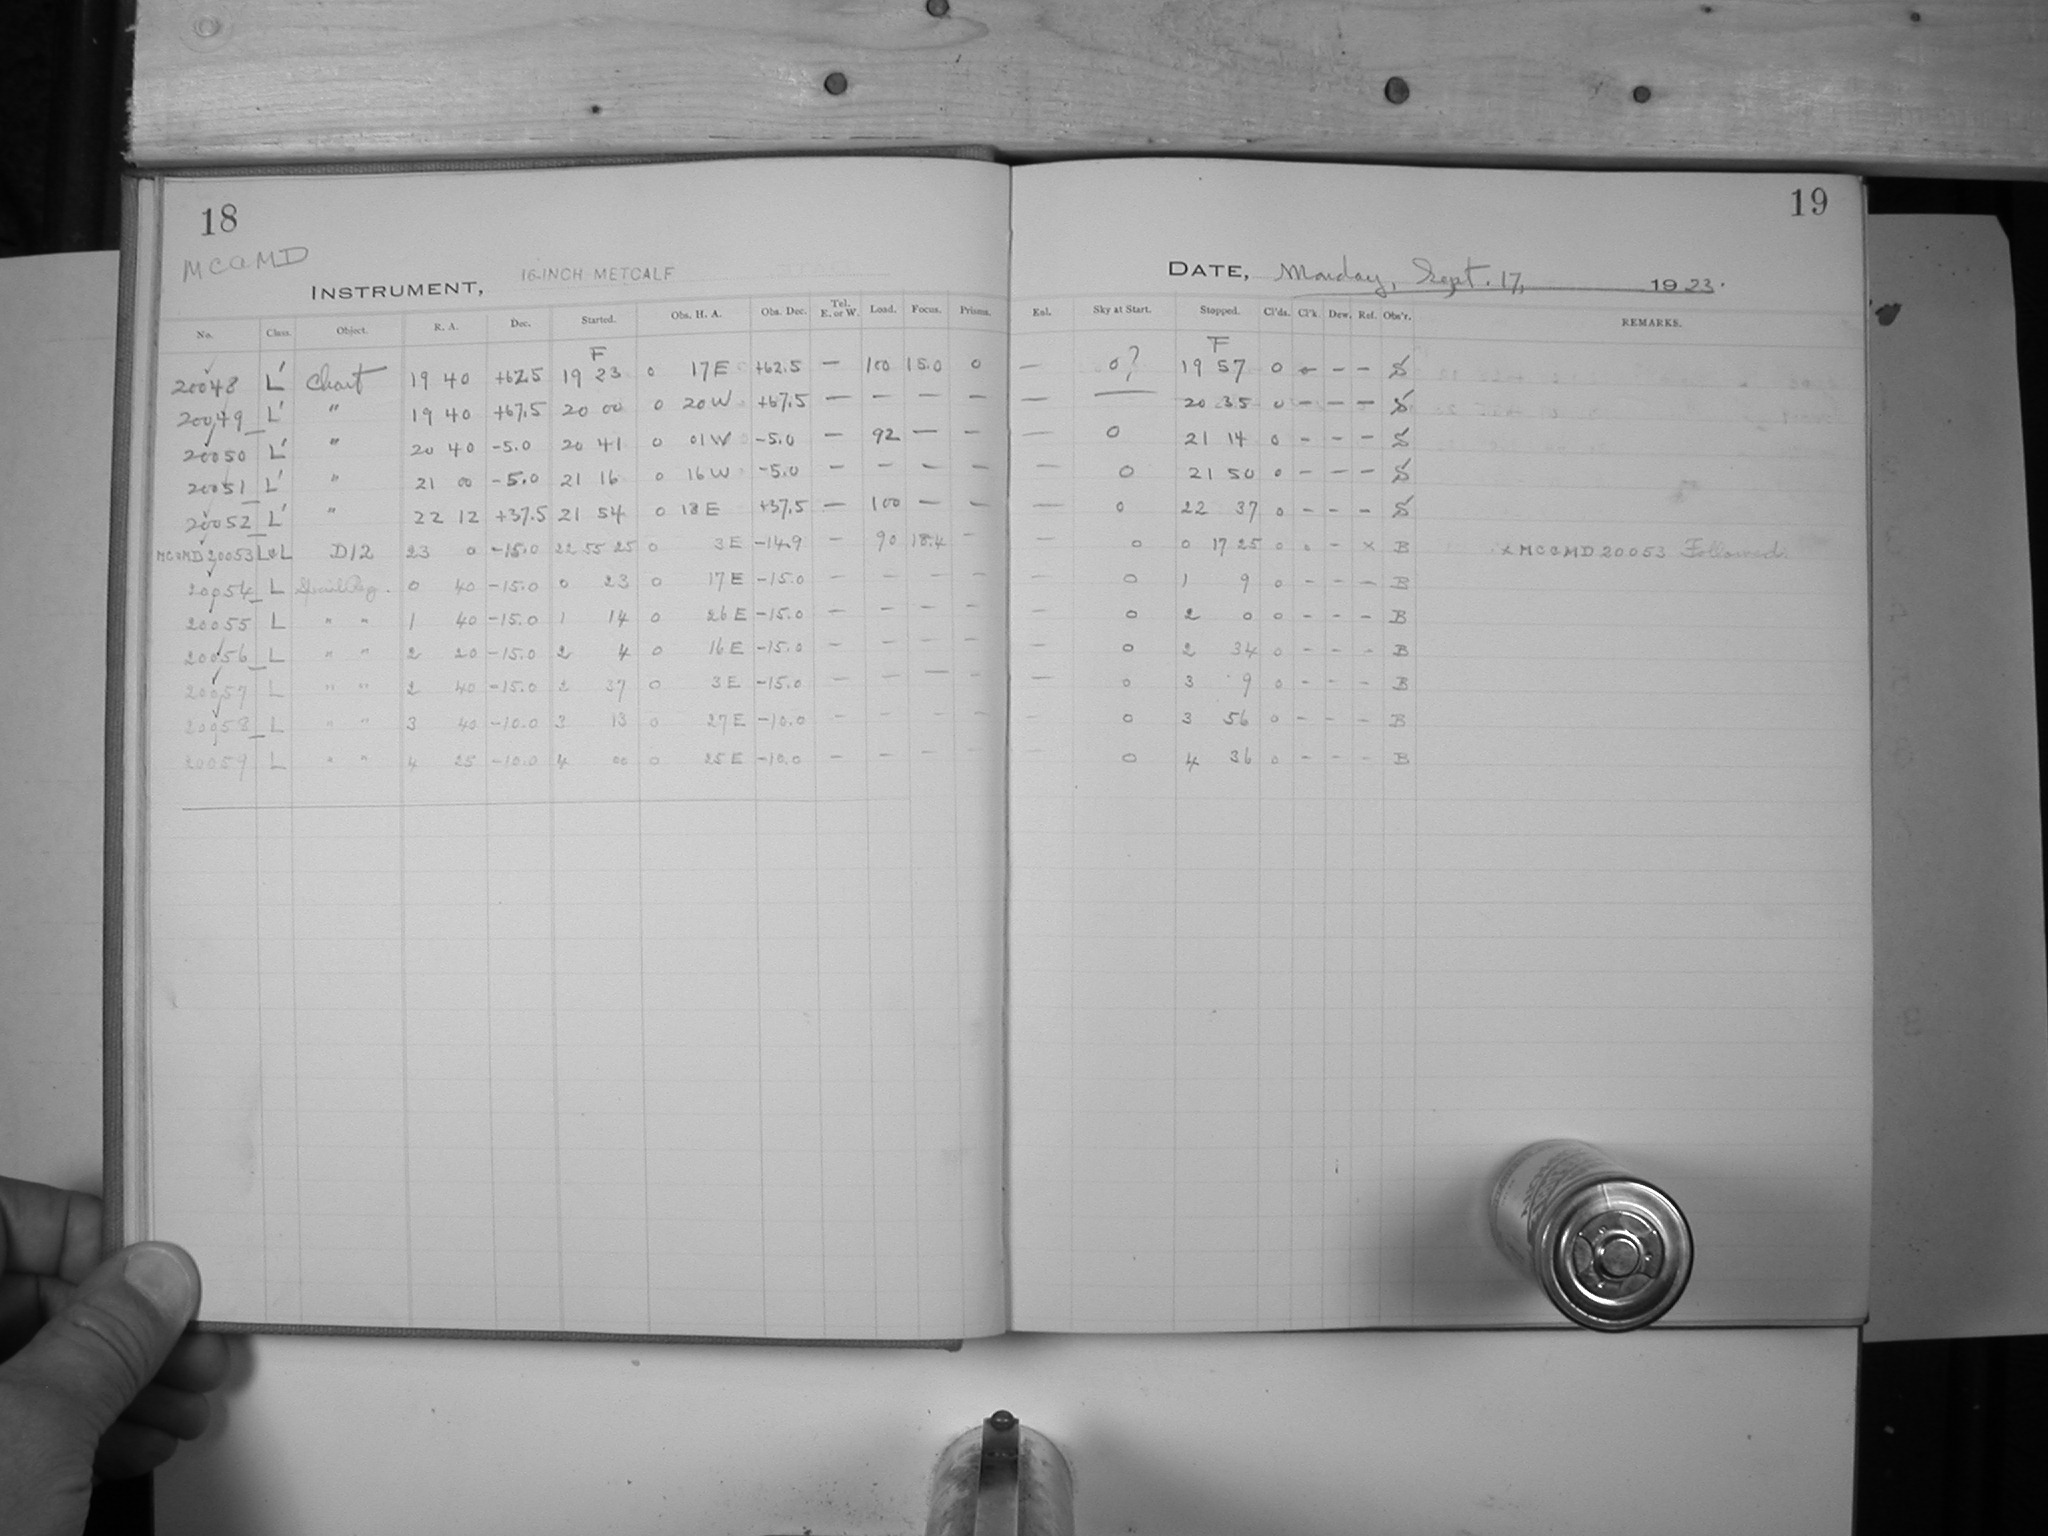 18
MCQMD
INSTRUMENT, 16-INCH METCALF
No. Class. Object. R. A. Dec. Started. Obs. H. A. Obs. Dec. Tel. E. or W. Load. Focus. Prisms.
F
20048 L' Chart 19 40 +62.5 19 23 0 17 E +62.5 — 100 15.0 0
20049 L' " 19 40 +67.5 20 00 0 20 W +67.5 — — — —
20050 L' " 20 40 -5.0 20 41 0 01 W -5.0 — 92 — —
20051 L' " 21 00 -5.0 21 16 0 16 W -5.0 — — — —
20052 L' " 22 12 +37.5 21 54 0 18 E +37.5 — 100 — —
MCQMD 20053 L&L D12 23 0 -15.0 22 55 25 0 3 E -14.9 - 90 18.4 -
20054 L 0 40 -15.0 0 23 0 17 E -15.0 — — — —
20055 L " " 1 40 -15.0 1 14 0 26 E -15.0 — — — —
20056 L " " 2 20 -15.0 2 4 0 16 E -15.0 — — — —
20057 L " " 2 40 -15.0 2 37 0 3 E -15.0 — — — —
20058 L " " 3 40 -10.0 3 13 0 27 E -10.0 — — — —
20059 L " " 4 25 -10.0 4 00 0 25 E -10.0 — — — —
19
DATE, Monday, Sept. 17, 1923.
Exl. Sky at Start. Stopped. Cl'ds. Cl'k. Dew. Ref. Obs'r. REMARKS.
F
— 0? 19 57 0 - - - S
— — 20 35 0 - - - S
— 0 21 14 0 - - - S
— 0 21 50 0 - - - S
— 0 22 37 0 - - - S
— 0 0 17 25 0 - - x B x MCQMD 20053 Followed.
— 0 1 9 0 - - - B
— 0 2 0 0 - - - B
— 0 2 34 0 - - - B
— 0 3 9 0 - - - B
— 0 3 56 0 - - - B
— 0 4 36 0 - - - B